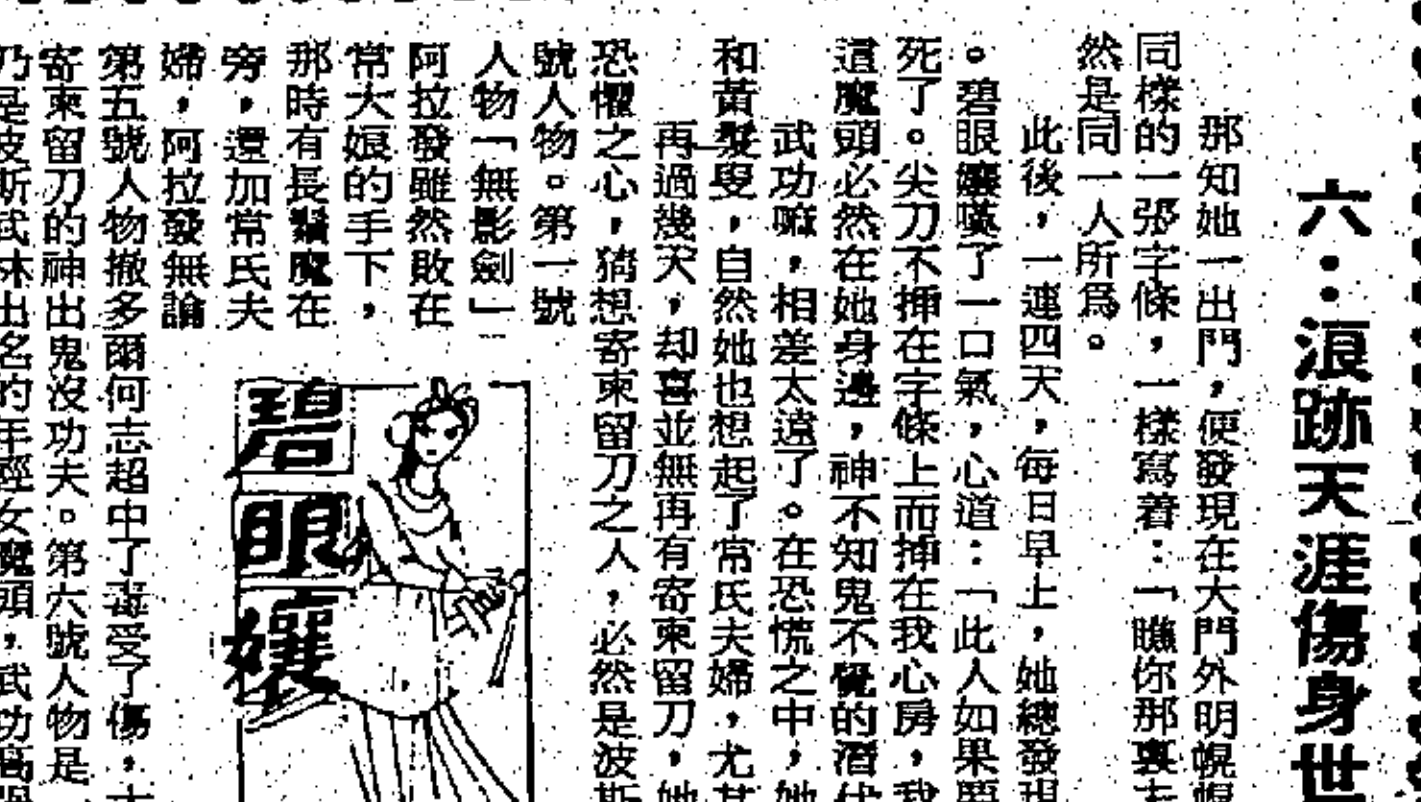 六：浪跡天涯傷身世
那知她一出門，便發現在大門外明幌幌
同樣的一張字條，一樣寫着：「瞧你那裏去
然是同一人所爲。
此後，一連四天，每日早上，她總發現
。碧眼孃嘆了一口氣，心道：「此人如果要
死了。尖刀不揷在字條上而揷在我心房，我
這魔頭必然在她身邊，神不知鬼不覺的潛伏
武功嘛，相差太遠了。在恐慌之中，她
和黃髮叟，自然她也想起了常氏夫婦，尤其
再過幾天，却喜並無再有寄柬留刀，她
恐懼之心，猜想寄柬留刀之人，必然是波斯
號人物。第一號
人物「無影劍」
阿拉發雖然敗在
常大娘的手下，
那時有長鬚魔在
旁，還加常氏夫
婦，阿拉發無論
第五號人物撤多爾何志超中了毒受了傷，
寄柬留刀的神出鬼沒功夫。第六號人物是
乃是波斯武林出名的年輕女魔頭，武功高
碧
眼
孃